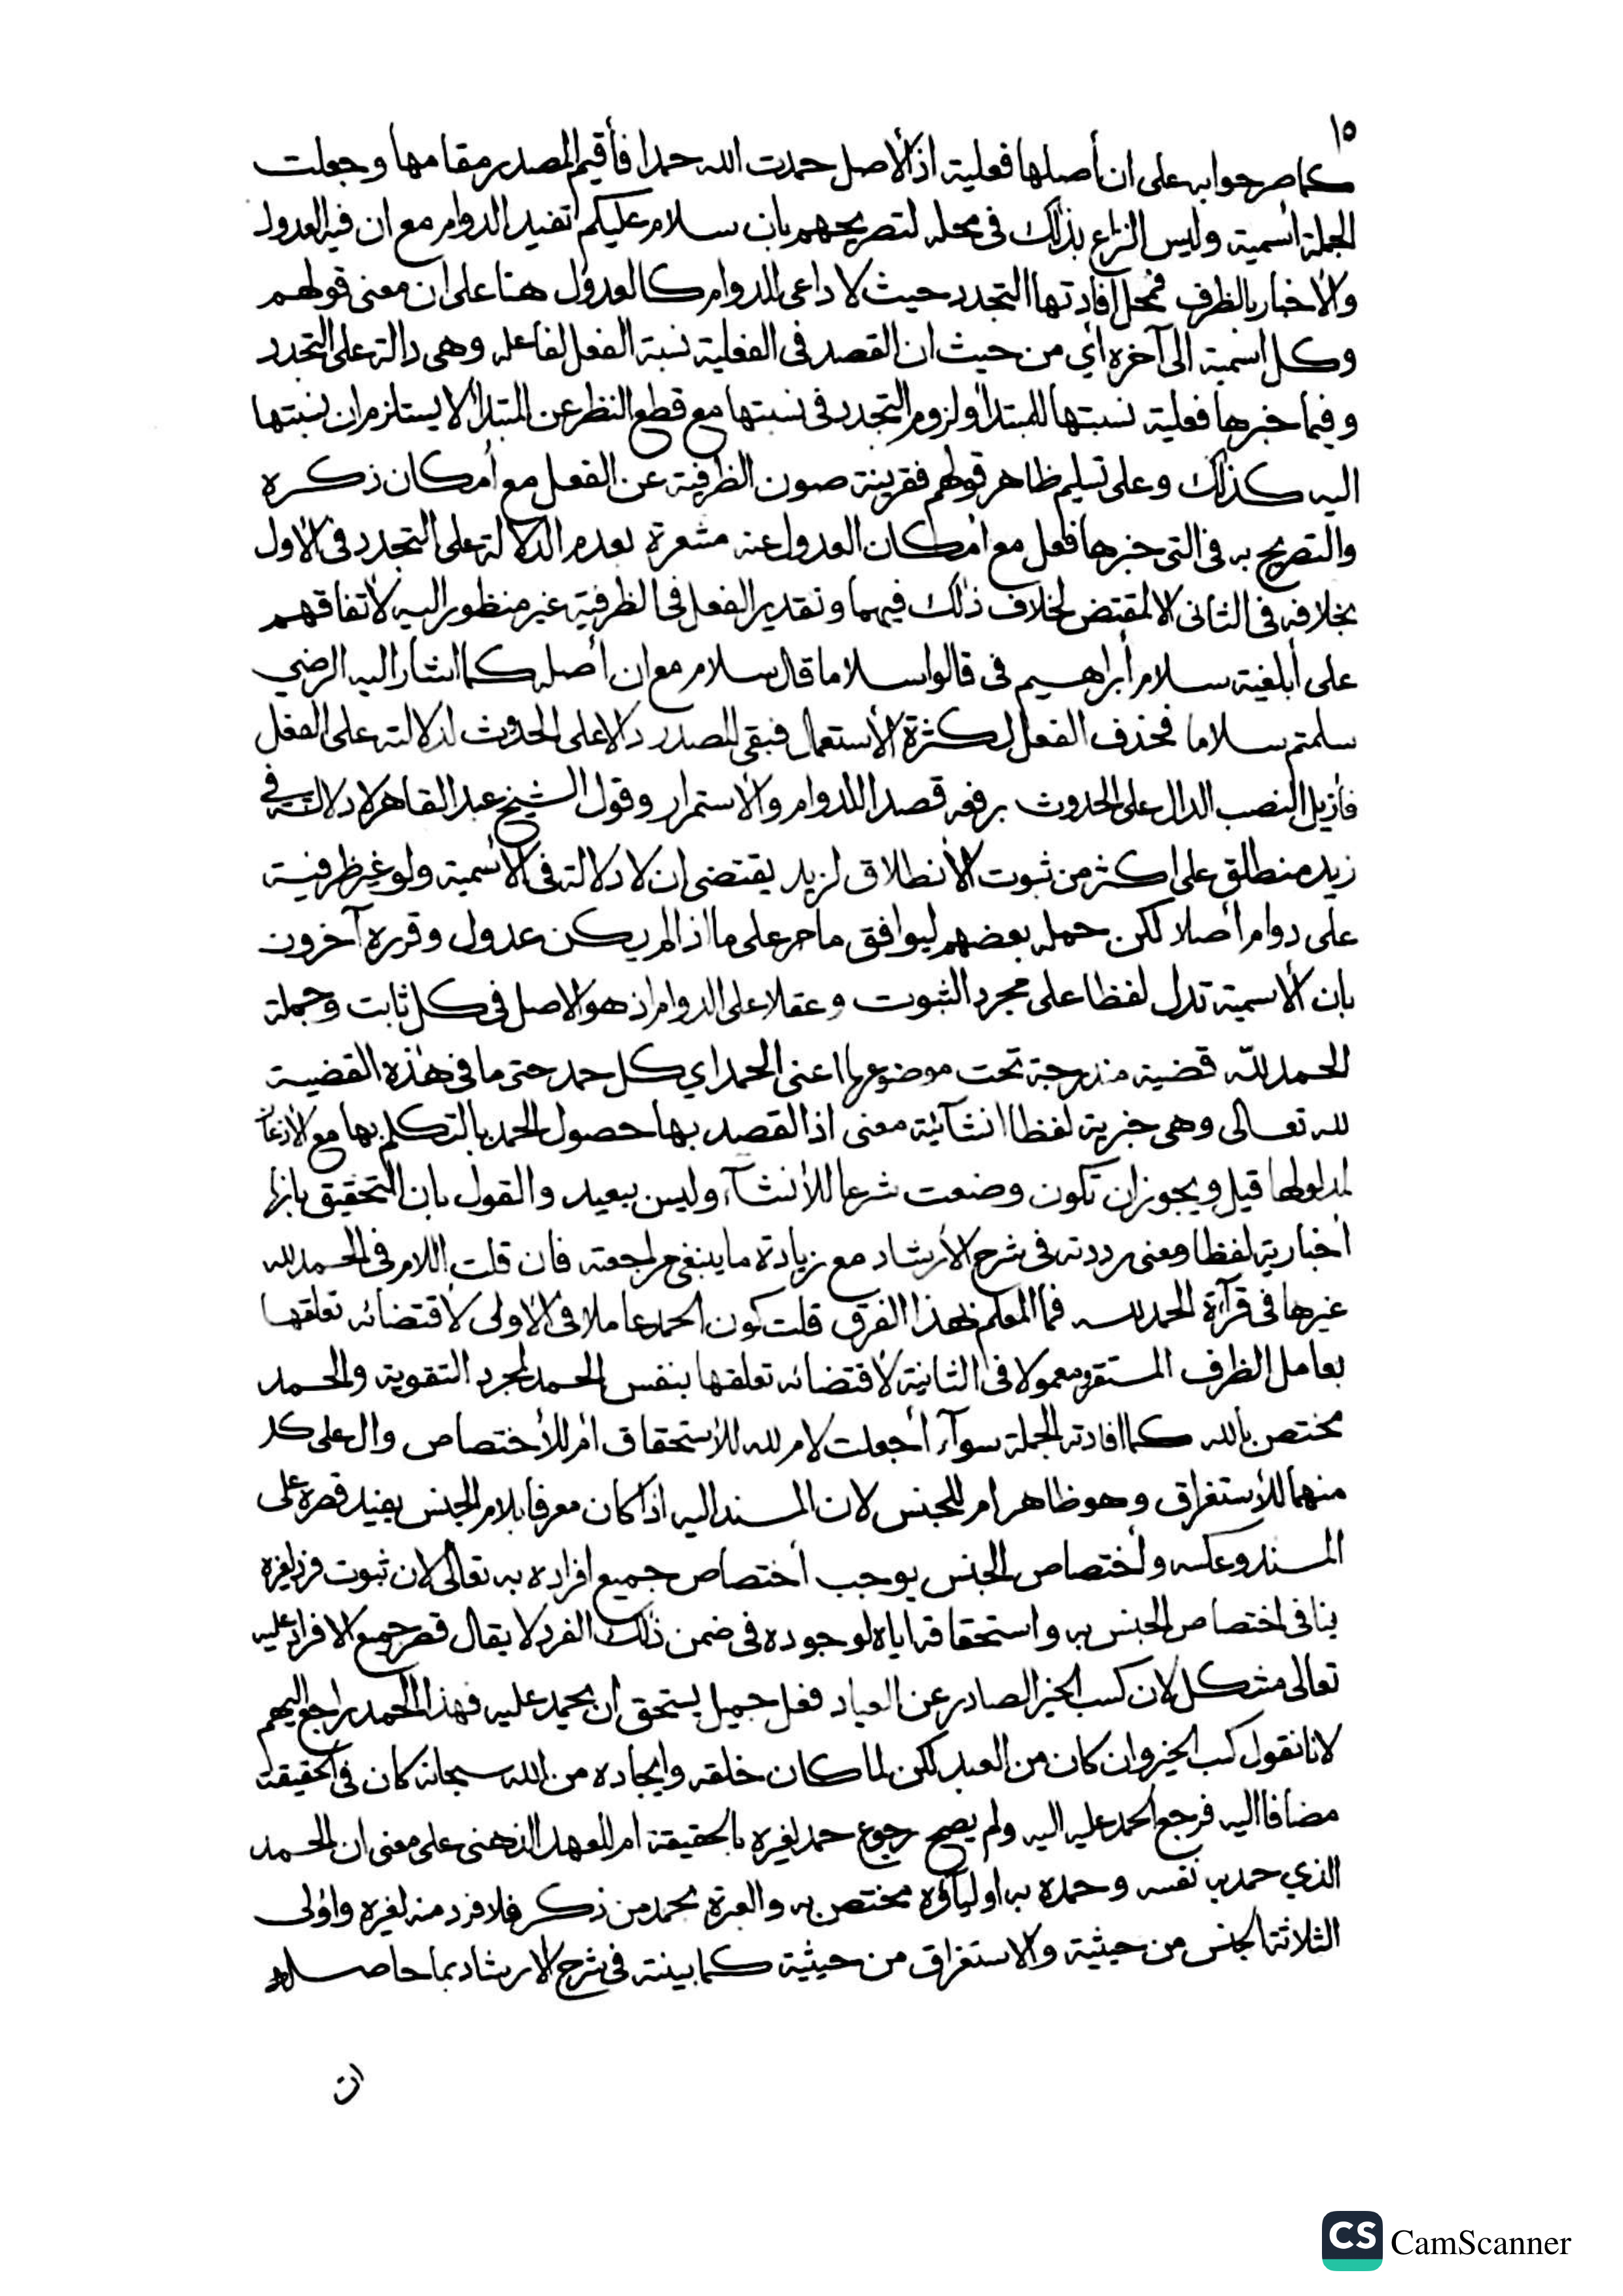 ١٥
كما صر جوابه على ان أصلها فعلية اذ الأصل حمدت الله حمدا فأقيم المصدر مقامها وجعلت
الجملة أسمية وليس النزاع بذلك في محله لتصريحهم بان سلام عليكم تفيد الدوام مع ان فيه العدول
والأخبار بالظرف فمحل افادتها التجدد حيث لا داعى للدوام كالعدول هنا على ان معنى قولهم
وكل اسمية الى آخره أي من حيث ان القصد في الفعلية نسبة الفعل لفاعله وهى دالة على التجدد
وفيما خبرها فعلية نسبتها للمبتدأ ولزوم التجدد في نسبتها مع قطع النظر عن المبتدأ لا يستلزم ان نسبتها
اليه كذلك وعلى تسليم ظاهر قولهم فقرينة صون الظرفية عن الفعل مع أمكان ذكره
والتصريح به في التى خبرها فعل مع أمكان العدول عنه مشعرة بعدم الدلالة على التجدد في الأول
بخلافه في الثانى الا لمقتض لخلاف ذلك فيهما وتقدير الفعل في الظرفية غير منظور اليه لأتفاقهم
على أبلغية سلام أبراهيم في قالوا سلاما قال سلام مع ان أصله كما اشار اليه الرضي
سلمتم سلاما فحذف الفعل لكثرة الأستعمال فبقى المصدر دالا على الحدوث لدلالته على الفعل
فأزيل النصب الدال على الحدوث برفعه قصدا للدوام والأستمرار وقول الشيخ عبد القاهر لا دلالة في
زيد منطلق على اكثر من ثبوت الأنطلاق لزيد يقتضى ان لا دلالة في الأسمية ولو غير ظرفية
على دوام أصلا لكن حمله بعضهم ليوافق ما مر على ما اذا لم يكن عدول وقرره آخرون
بان الأسمية تدل لفظا على مجرد الثبوت وعقلا على الدوام اذ هو الاصل في كل ثابت وجملة
الحمد للّه قضية مندرجة تحت موضوعها اعنى الحمد اي كل حمد حتى ما في هذه القضية
لله تعالى وهى خبرية لفظا انشآئية معنى اذ القصد بها حصول الحمد بالتكلم بها مع الأذعان
لمدلولها قيل ويجوز ان تكون وضعت شرعا للأنشآء وليس ببعيد والقول بان التحقيق بانها
أخبارية لفظا ومعنى رددته في شرح الأرشاد مع زيادة ما ينبغى مراجعته فان قلت اللام في الحمد لله
غيرها في قرآءة الحمد لله فما المعلم بهذا الفرق قلت كون الحمد عاملا في الأولى لأقتضائه تعلقها
بعامل الظرف المستقر ومعمولا في الثانية لأقتضائه تعلقها بنفس الحمد لمجرد التقوية والحمد
مختص بالله كما افادته الجملة سوآء أجعلت لام لله للأستحقاق أم للأختصاص وال على كل
منهما للأستغراق وهو ظاهر ام للجنس لان المسند اليه اذا كان معرفا بلام الجنس يفيد قصره على
المسند وعكسه وأختصاص الجنس يوجب أختصاص جميع افراده به تعالى لان ثبوت فرد لغيره
ينافى اختصاص الجنس به واستحقاقه اياه لوجوده في ضمن ذلك الفرد لا يقال قصر جميع الافراد عليه
تعالى مشكل لان كسب الخير الصادر عن العباد فعل جميل يستحق ان يحمد عليه فهذا الحمد راجع اليهم
لانا نقول كسب الخير وان كان من العبد لكن لما كان خلقه وايجاده من الله سبحانه كان في الحقيقة
مضافا اليه فرجع الحمد عليه اليه ولم يصح رجوع حمد لغيره بالحقيقة ام للعهد الذهنى على معنى ان الحمد
الذي حمد به نفسه وحمده به اوليآؤه مختص به والعبرة بحمد من ذكر فلا فرد منه لغيره واولى
الثلاثة الجنس من حيثية والاستغراق من حيثية كما بينته في شرح الارشاد بما حاصله
ان
CS CamScanner